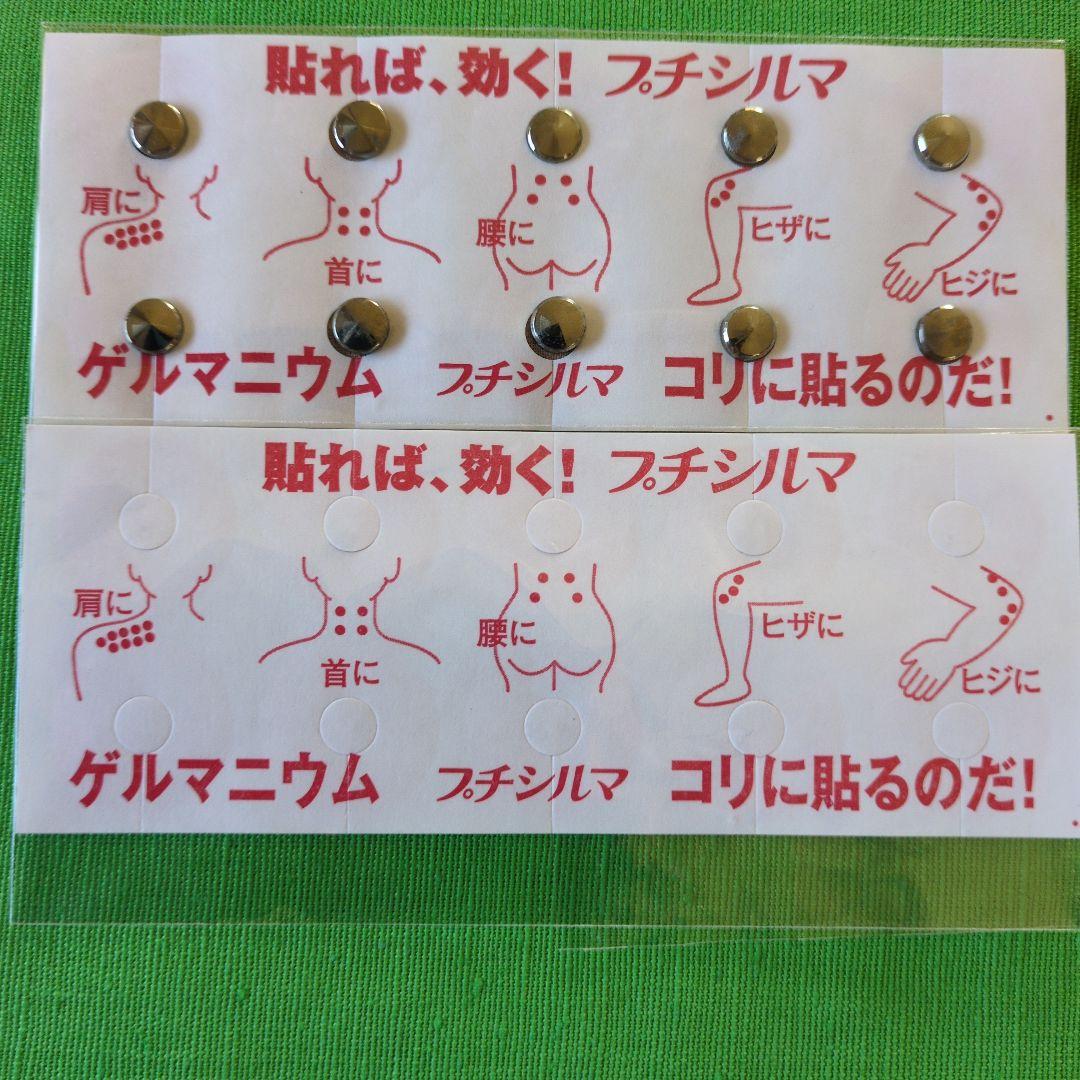 貼れば、効く! プチシルマ
肩に
首に
腰に
ヒザに
ヒジに
ゲルマニウム プチシルマ コリに貼るのだ!
貼れば、効く! プチシルマ
肩に
首に
腰に
ヒザに
ヒジに
ゲルマニウム プチシルマ コリに貼るのだ!